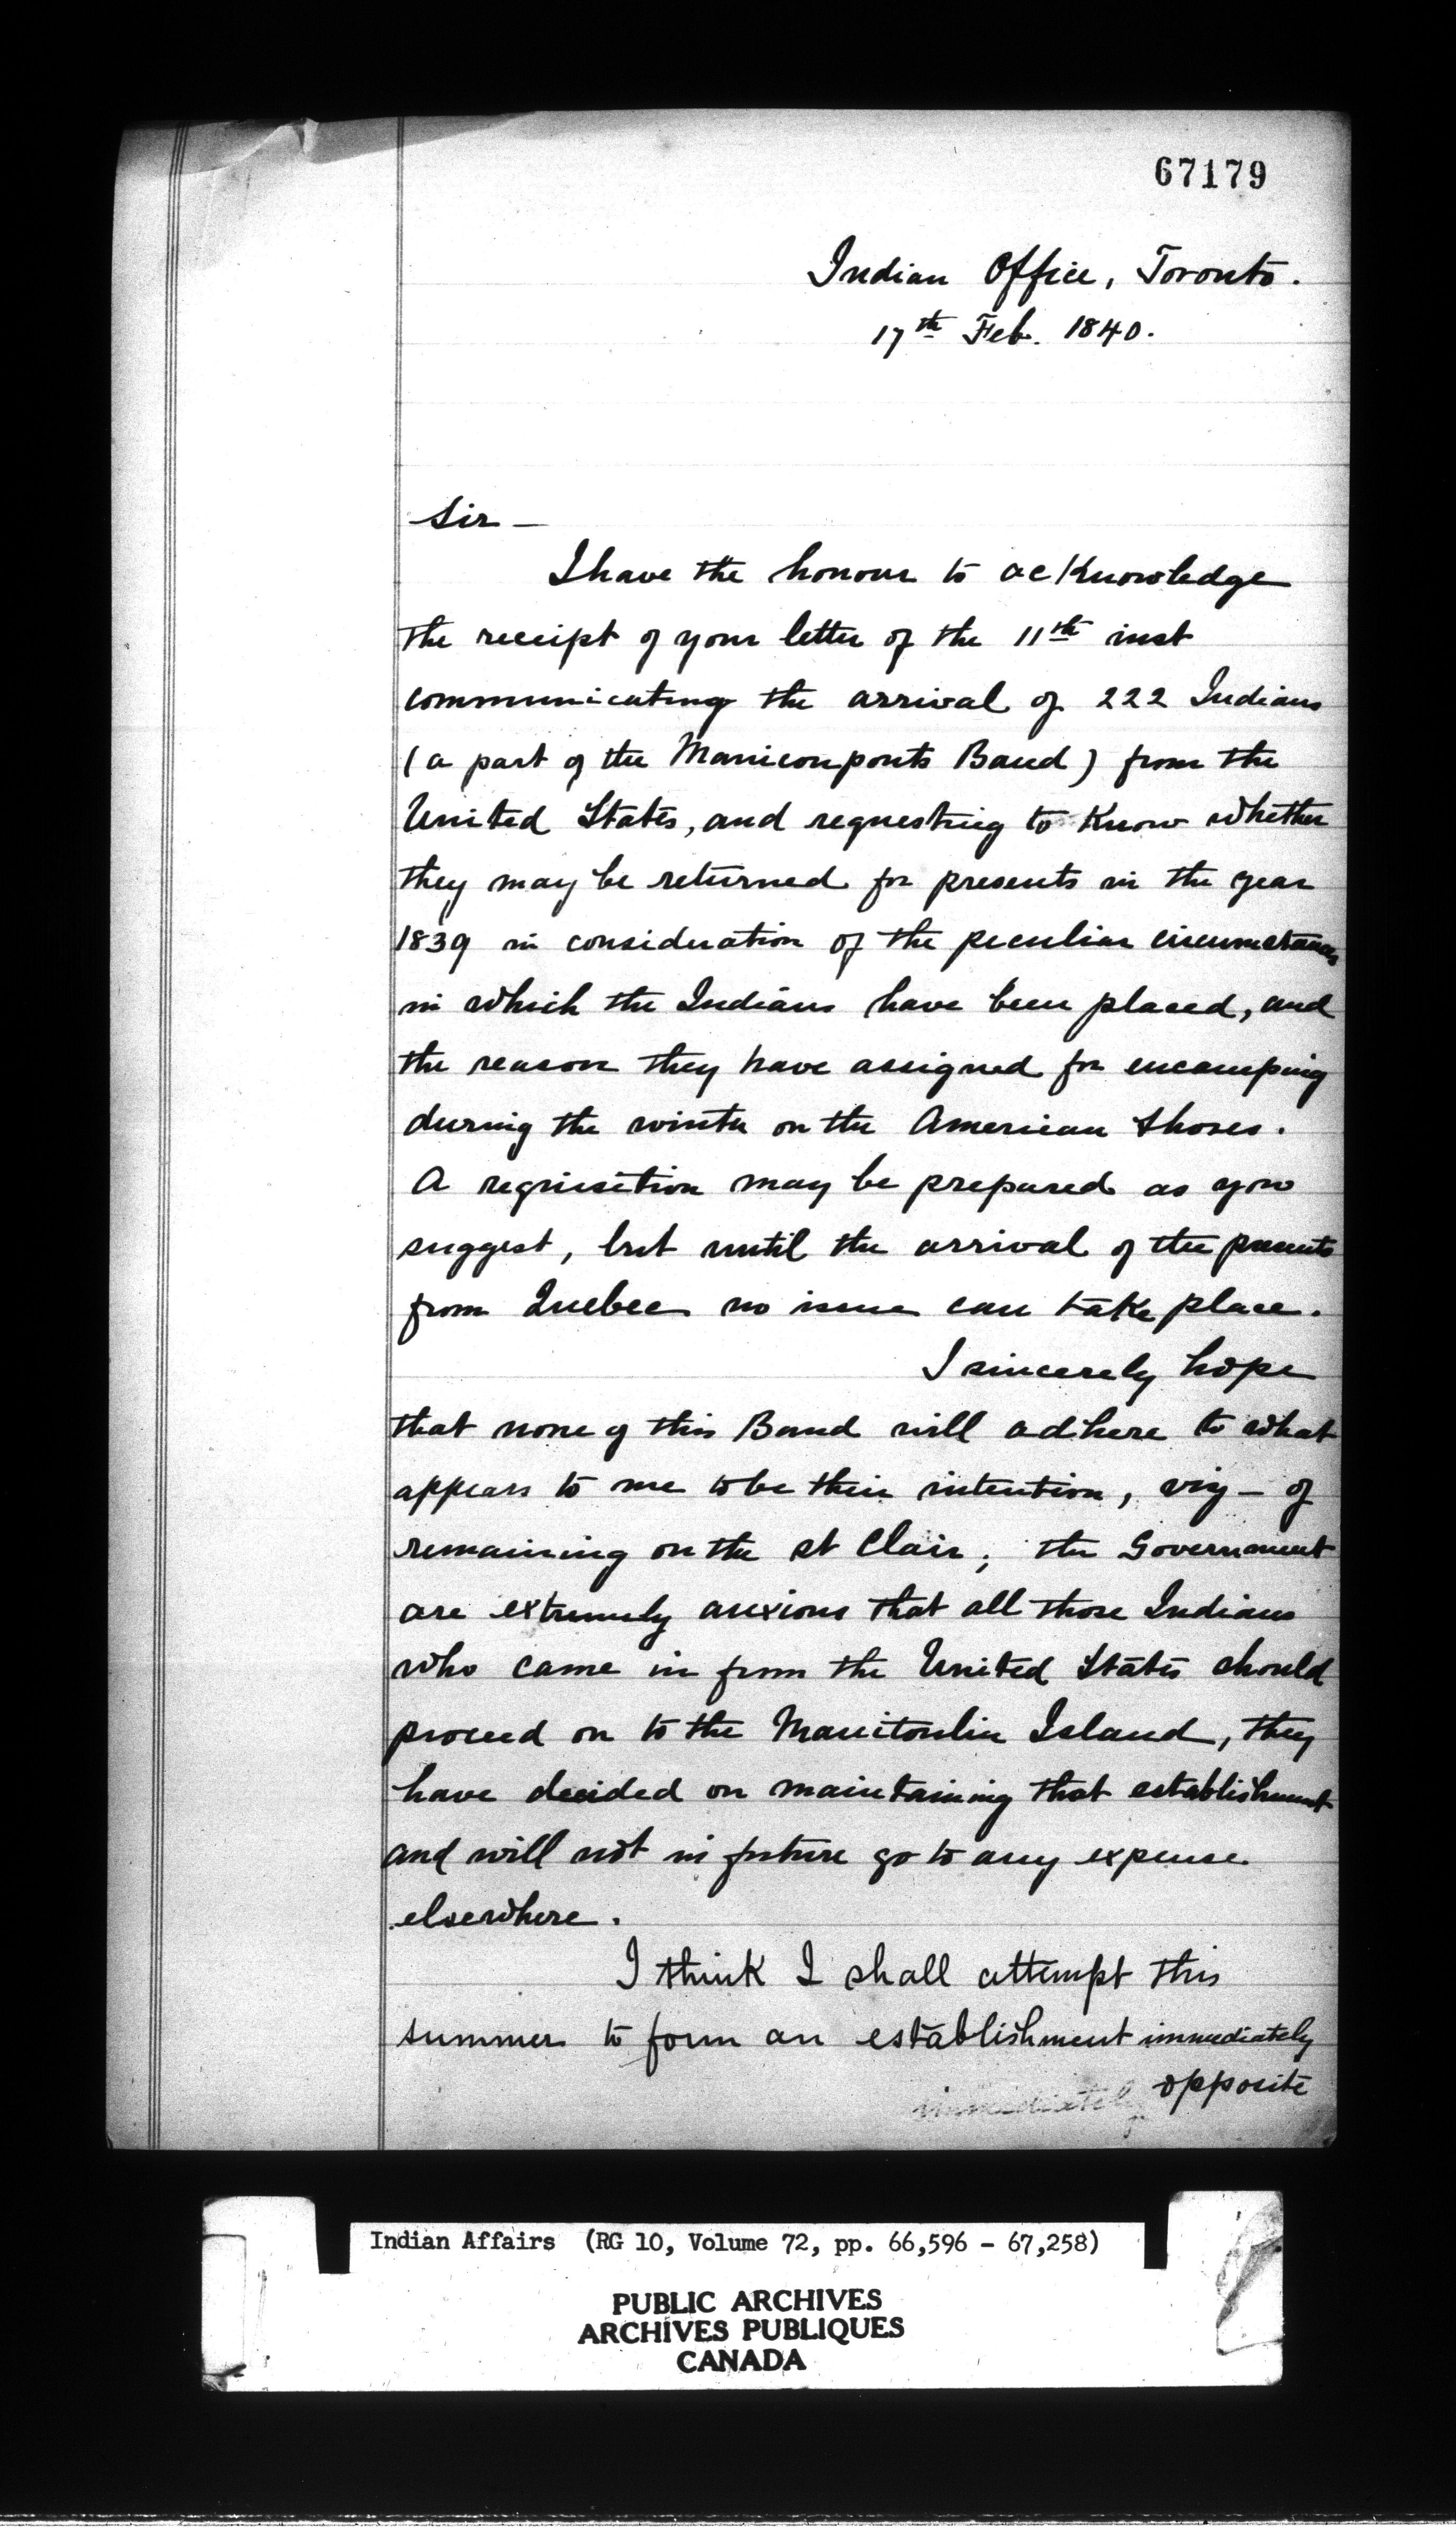 67179
Indian Office, Toronto.
17th Feb. 1840.
Sir —
I have the honour to acknowledge
the receipt of your letter of the 11th inst
communicating the arrival of 222 Indians
(a part of the Band) from the
United States, and requesting to Know whether
they may be returned for presents in the year
1839 in consideration of the peculiar circumstances
in which the Indians have been placed, and
the reason they have assigned for encamping
during the winter on the American shores.
A requisition may be prepared as you
suggest, but until the arrival of the presents
from Quebec no issue can take place.
I sincerely hope
that none of this Band will adhere to what
appears to me to be their intention, viz — of
remaining on the St Clair; the Government
are extremely anxious that all those Indians
who came in from the United States should
proceed on to the Manitoulin Island, they
have decided on maintaining that establishment
and will not in future go to any expense
elsewhere.
I think I shall attempt this
summer to form an establishment immediately
opposite
immediately
Indian Affairs (RG 10, Volume 72, pp. 66,596 - 67,258)
PUBLIC ARCHIVES
ARCHIVES PUBLIQUES
CANADA